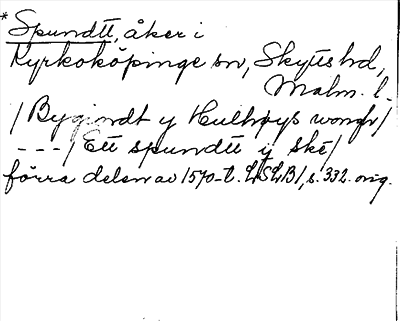 * Spundtt, åker i
Kyrkoköpinge sn, Skytts hd,
Malm. l.
/ Bygindt y Hulhøys wongh /
- - - / Ett spundtt y ske /
förra delen av 1570-t. LSLB1, s. 332. orig.